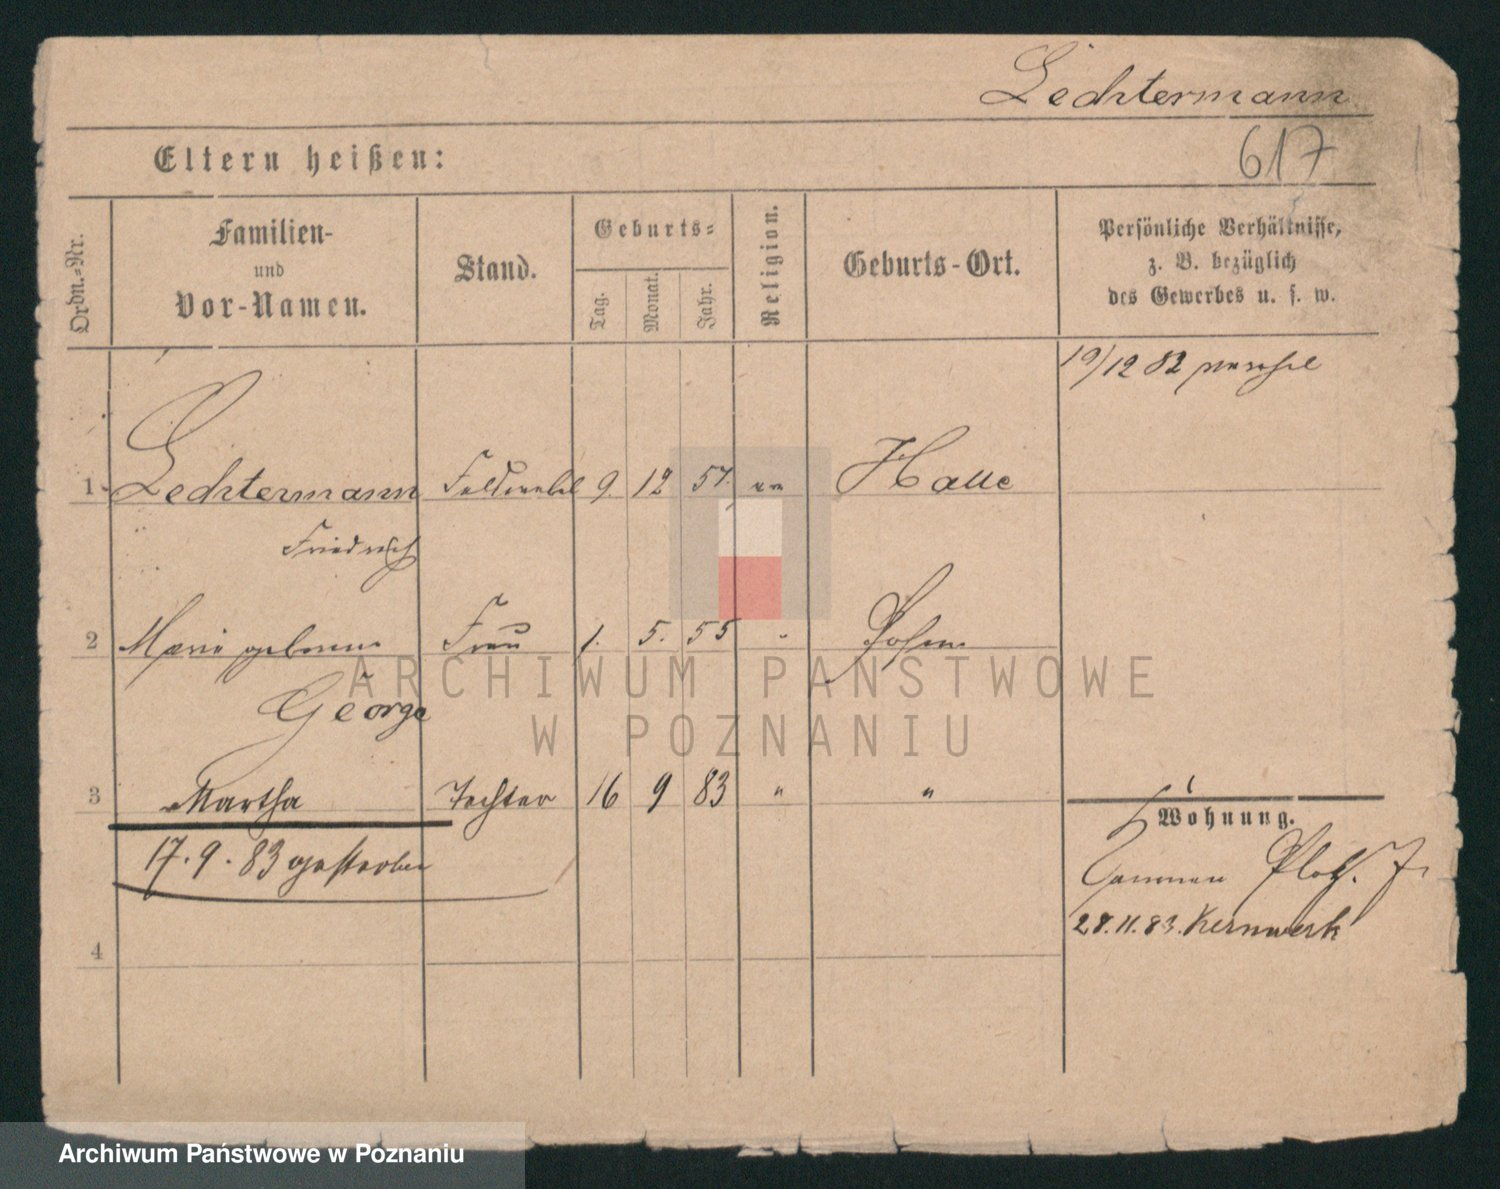 Lechtermann
617
Eltern heißen:
Ordn.-Nr.
Familien-
und
Vor-Namen.
Stand.
Geburts-
Tag.
Monat.
Jahr.
Religion.
Geburts-Ort.
Persönliche Verhältnisse,
z. B. bezüglich
des Gewerbes u. s. w.
19/12 82
1 Lechtermann Feldwebel 9. 12 57. ev Halle
Friedrich
2 Marie geborene Frau 1. 5. 55 " Posen
George
3 Martha Tochter 16 9 83 " "
Wohnung.
17.9.83 gestorben
Kanonen Platz. 7
28.11.83. Kernwerk
4
ARCHIWUM PANSTWOWE
W POZNANIU
Archiwum Państwowe w Poznaniu